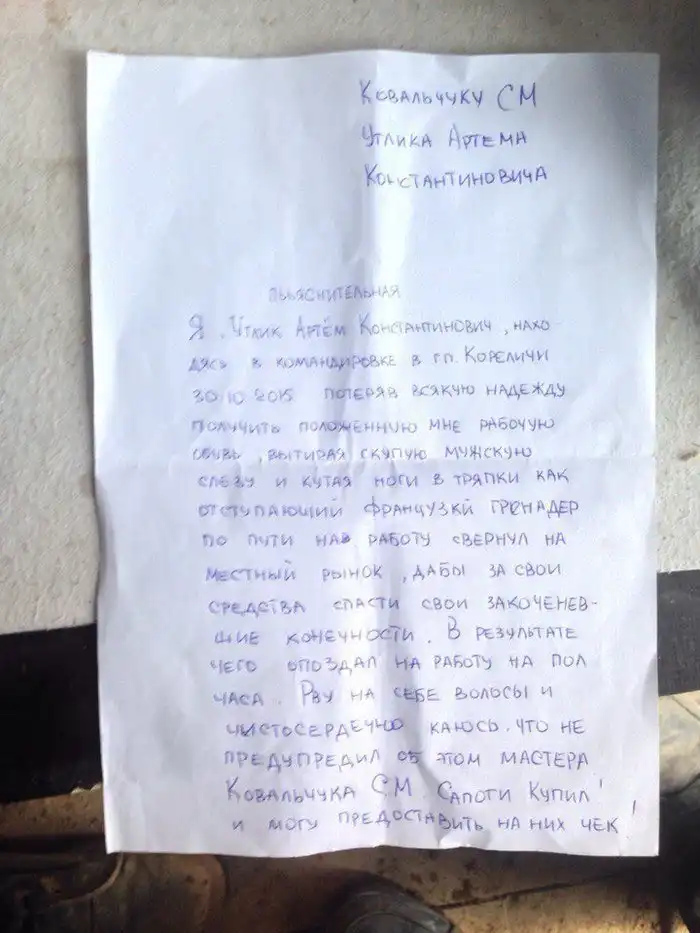 Ковальчуку СМ
Утлика Артема
Константиновича
Объяснительная
Я, Утлик Артём Константинович, нахо-
дясь в командировке в гп. Кореличи
30.10.2015 потеряв всякую надежду
получить положенную мне рабочую
обувь, вытирая скупую мужскую
слезу и кутая ноги в тряпки как
отступающий французкй гренадер
по пути на работу свернул на
местный рынок, дабы за свои
средства спасти свои закоченев-
шие конечности. В результате
чего опоздал на работу на пол
часа. Рву на себе волосы и
чистосердечно каюсь, что не
предупредил об этом мастера
Ковальчука С.М. Сапоги купил!
и могу предоставить на них чек!